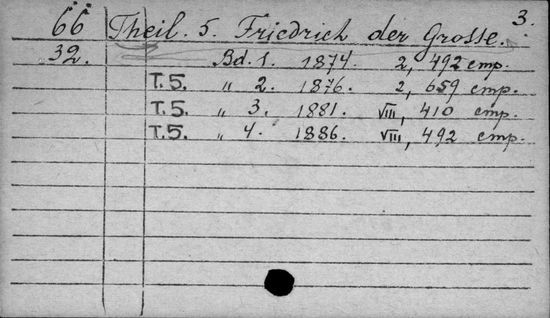 3.
66 Theil. 5. Friedrich der Grosse.
32. Bd. 1. 1874. 2, 492 стр.
T.5. „ 2. 1876. 2, 659 стр.
T.5. „ 3. 1881. VIII, 410 стр.
T.5. „ 4. 1886. VIII, 492 стр.